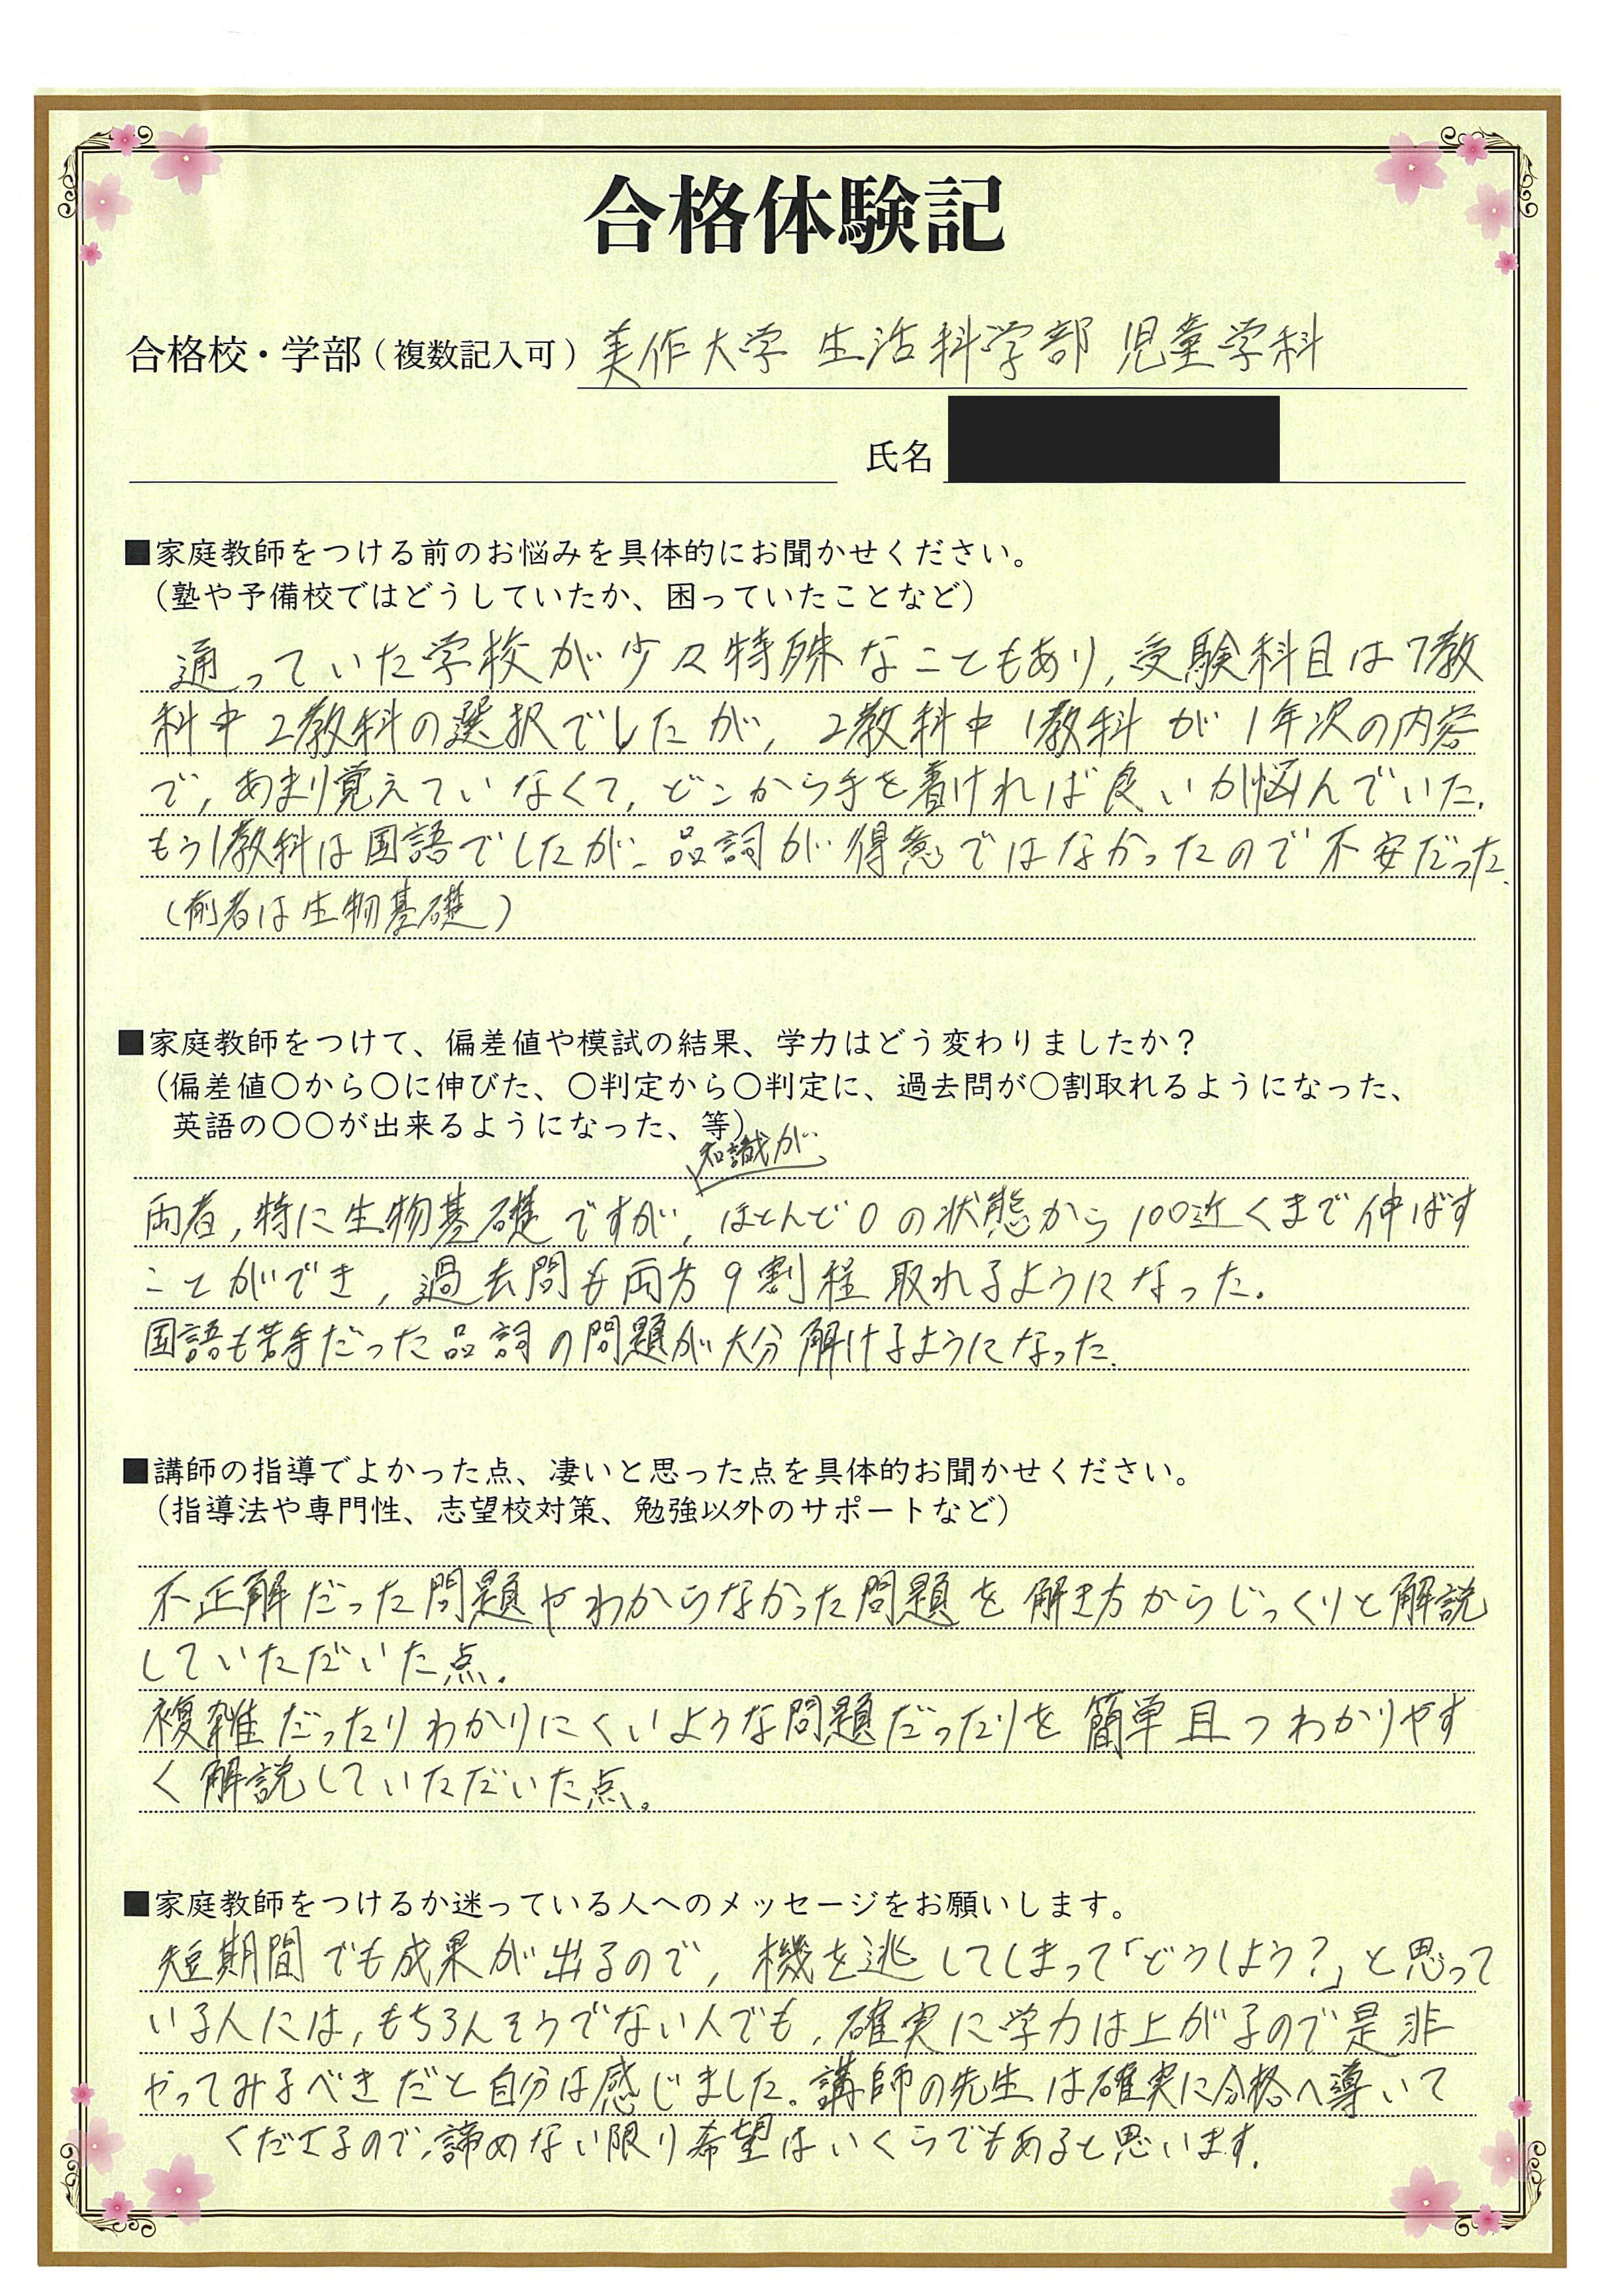 合格体験記
合格校・学部（複数記入可）美作大学 生活科学部 児童学科
氏名
■家庭教師をつける前のお悩みを具体的にお聞かせください。
（塾や予備校ではどうしていたか、困っていたことなど）
通っていた学校が少々特殊なこともあり,受験科目は7教
科中2教科の選択でしたが,2教科中1教科が1年次の内容
で,あまり覚えていなくて,どこから手を着ければ良いか悩んでいた.
もう1教科は国語でしたが、品詞が得意ではなかったので不安だった.
(前者は生物基礎)
■家庭教師をつけて、偏差値や模試の結果、学力はどう変わりましたか？
（偏差値〇から〇に伸びた、〇判定から〇判定に、過去問が〇割取れるようになった、
英語の〇〇が出来るようになった、等）
知識が
両者,特に生物基礎ですが,ほとんど0の状態から100近くまで伸ばす
ことができ,過去問も両方9割程取れるようになった.
国語も苦手だった品詞の問題が大分解けるようになった.
■講師の指導でよかった点、凄いと思った点を具体的お聞かせください。
（指導法や専門性、志望校対策、勉強以外のサポートなど）
不正解だった問題やわからなかった問題を解き方からじっくりと解説
していただいた点.
複雑だったりわかりにくいような問題だったりを簡単且つわかりやす
く解説していただいた点。
■家庭教師をつけるか迷っている人へのメッセージをお願いします。
短期間でも成果が出るので,機を逃してしまって「どうしよう?」と思って
いる人には,もちろんそうでない人でも,確実に学力は上がるので是非
やってみるべきだと自分は感じました。講師の先生は確実に合格へ導いて
くださるので,諦めない限り希望はいくらでもあると思います.